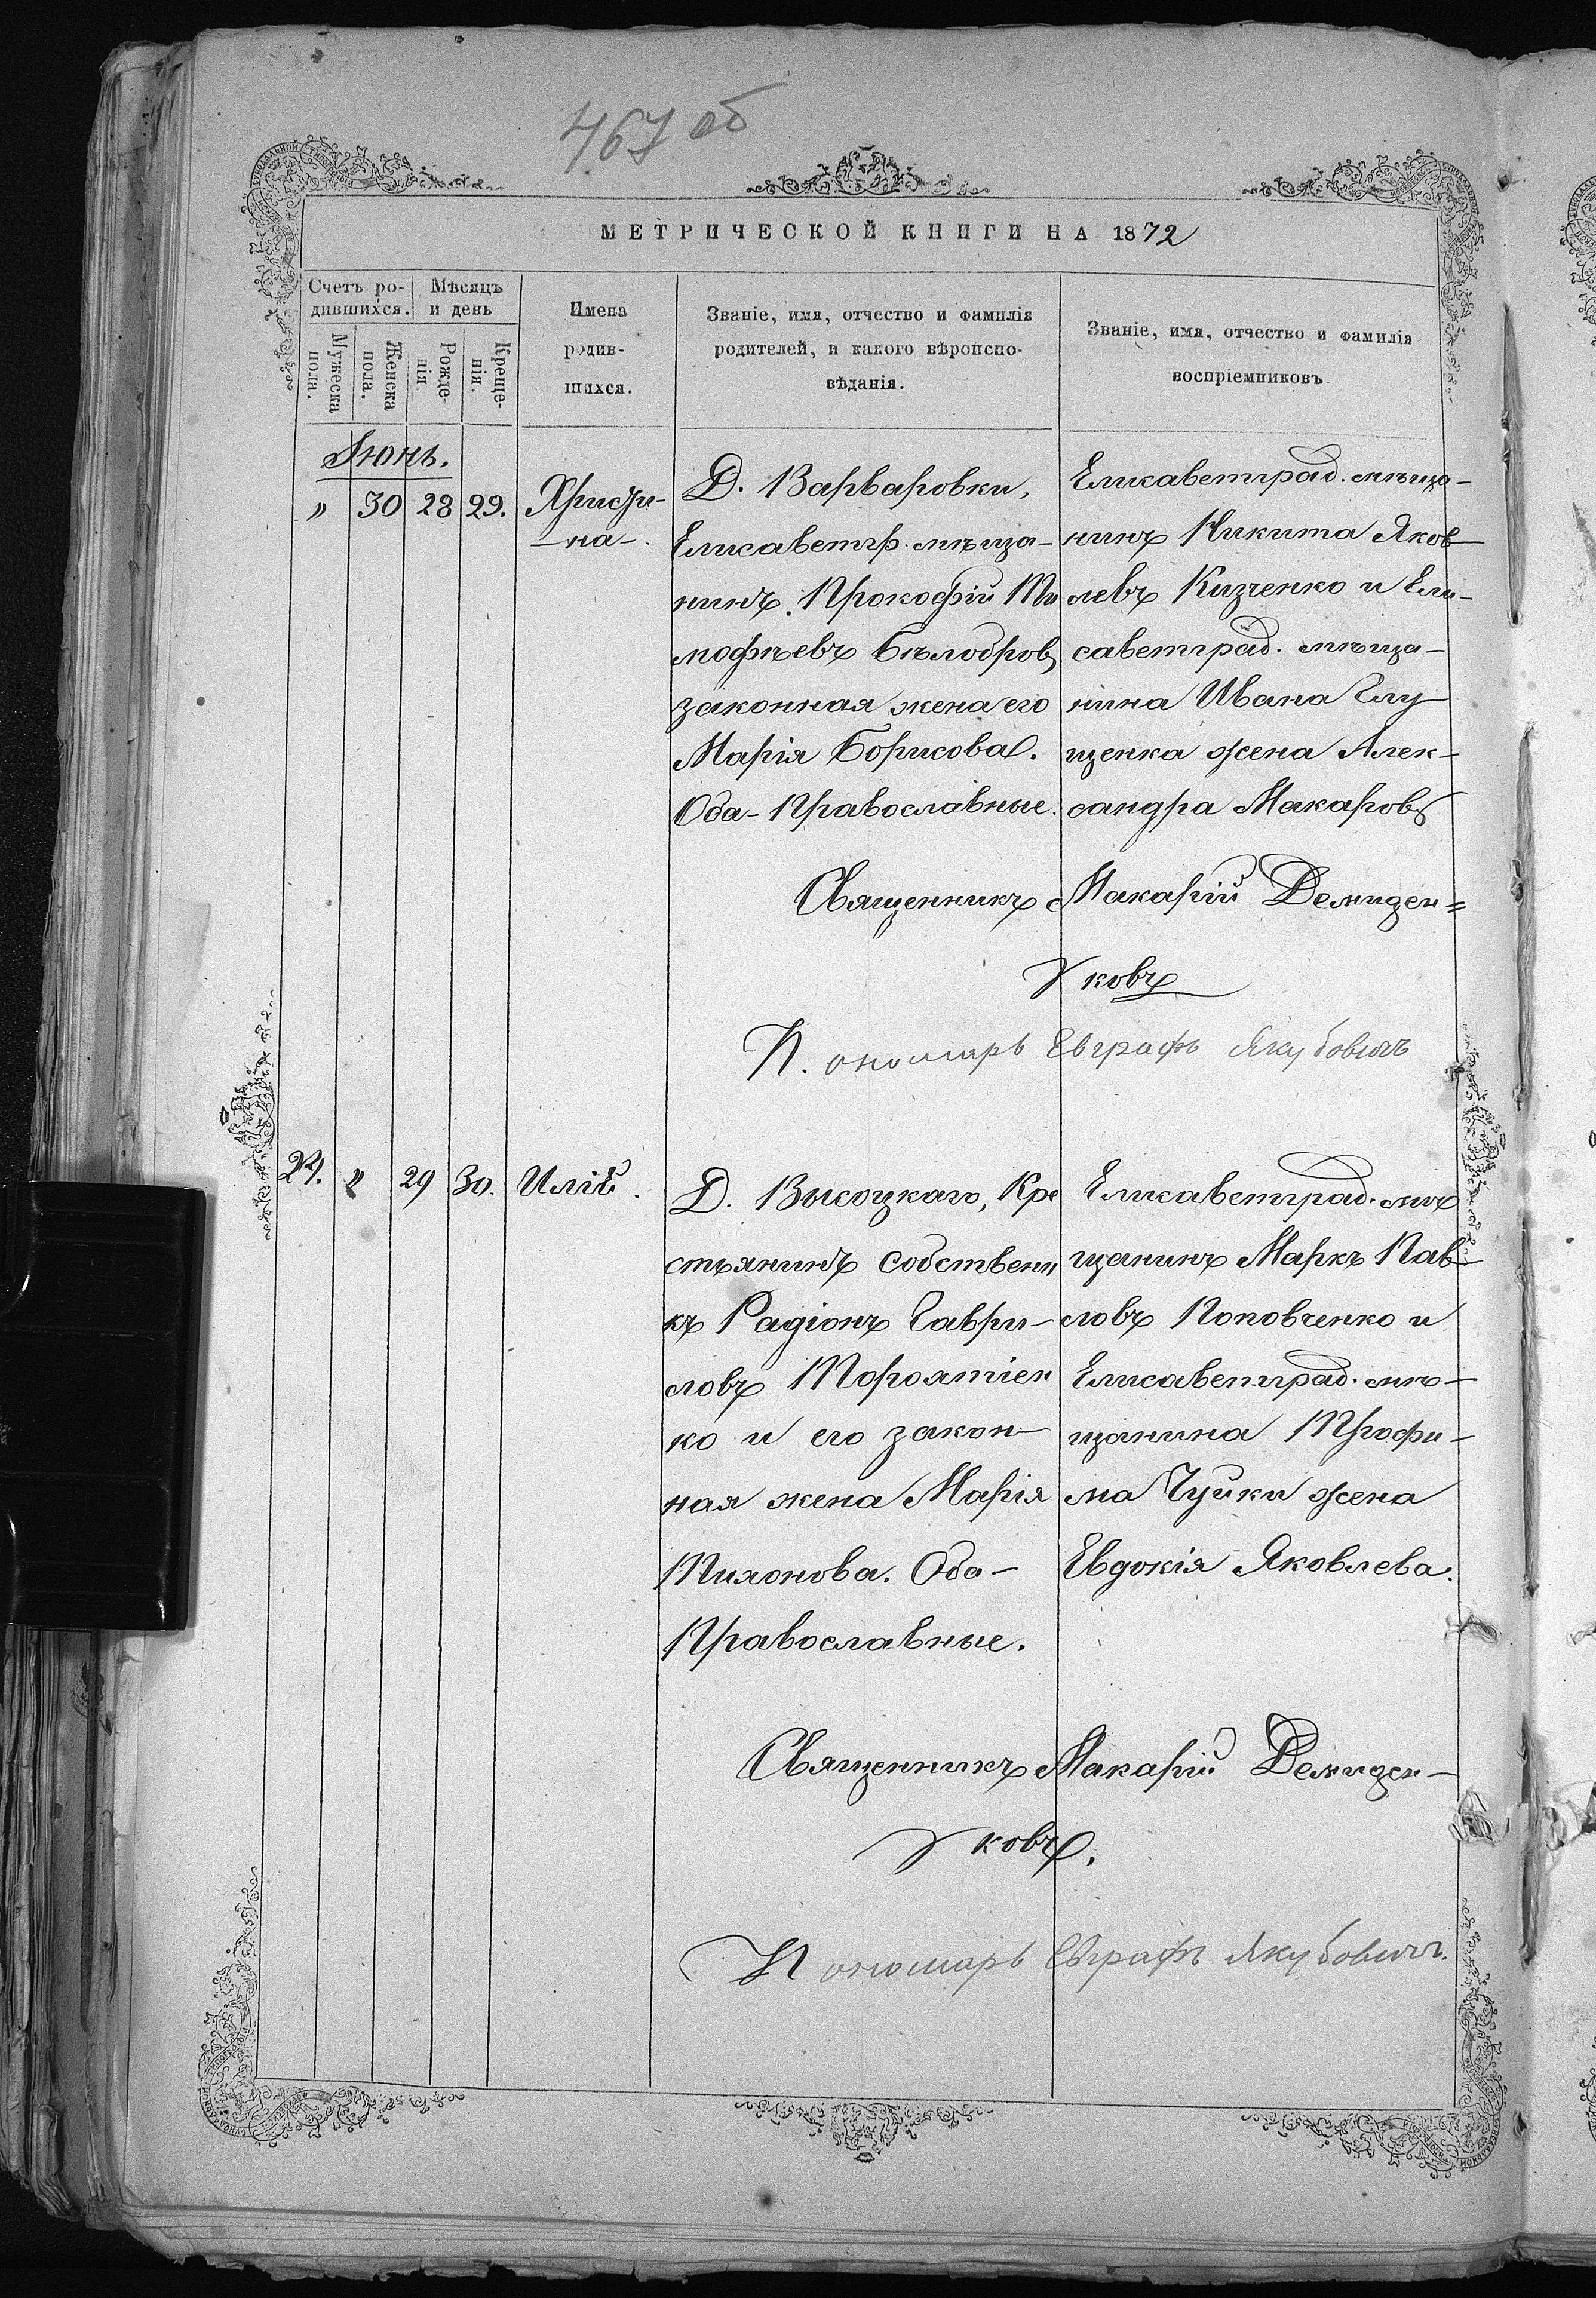 467 об
МЕТРИЧЕСКОЙ КНИГИ НА 1872
Счетъ ро-
дившихся.
Мѣсяцъ
и день
Мужеска
пола.
Женска
пола.
Рожде-
нія.
Креще-
нія.
Имена
родив-
шихся.
Званіе, имя, отчество и фамилія
родителей, и какого вѣроиспо-
вѣданія.
Званіе, имя, отчество и фамилія
воспріемниковъ
Іюнь.
" 30 28 29.
Христи-
-на-.
Д. Варваровки,
Елисаветгр. мѣща-
нинъ Прокофій Ти
мофѣевъ Бѣлобров,
законная жена его
Марія Борисова.
Оба-Православные.
Елисаветград. мѣща-
нинъ Никита Яков
левъ Кизченко и Ели-
саветград. мѣща-
нина Ивана Глу
щенка жена Алек-
сандра Макаров
Священникъ Макарій Демиден=
ковъ
Пономарь Евграфъ Якубовичъ
24. " 29 30.
Илій.
Д. Высоцкаго, Кре
стьянинъ собственни
къ Радіонъ Гаври-
ловъ Тороятіен
ко и его закон-
ная жена Марія
Тихонова. Оба-
Православные.
Елисаветград. мѣ
щанинъ Маркъ Пав-
ловъ Поповченко и
Елисаветград. мѣ-
щанина Трофи-
ма Чуйки жена
Евдокія Яковлева.
Священникъ Макарій Демиден-
ковъ.
Пономарь Евграфъ Якубовичъ.